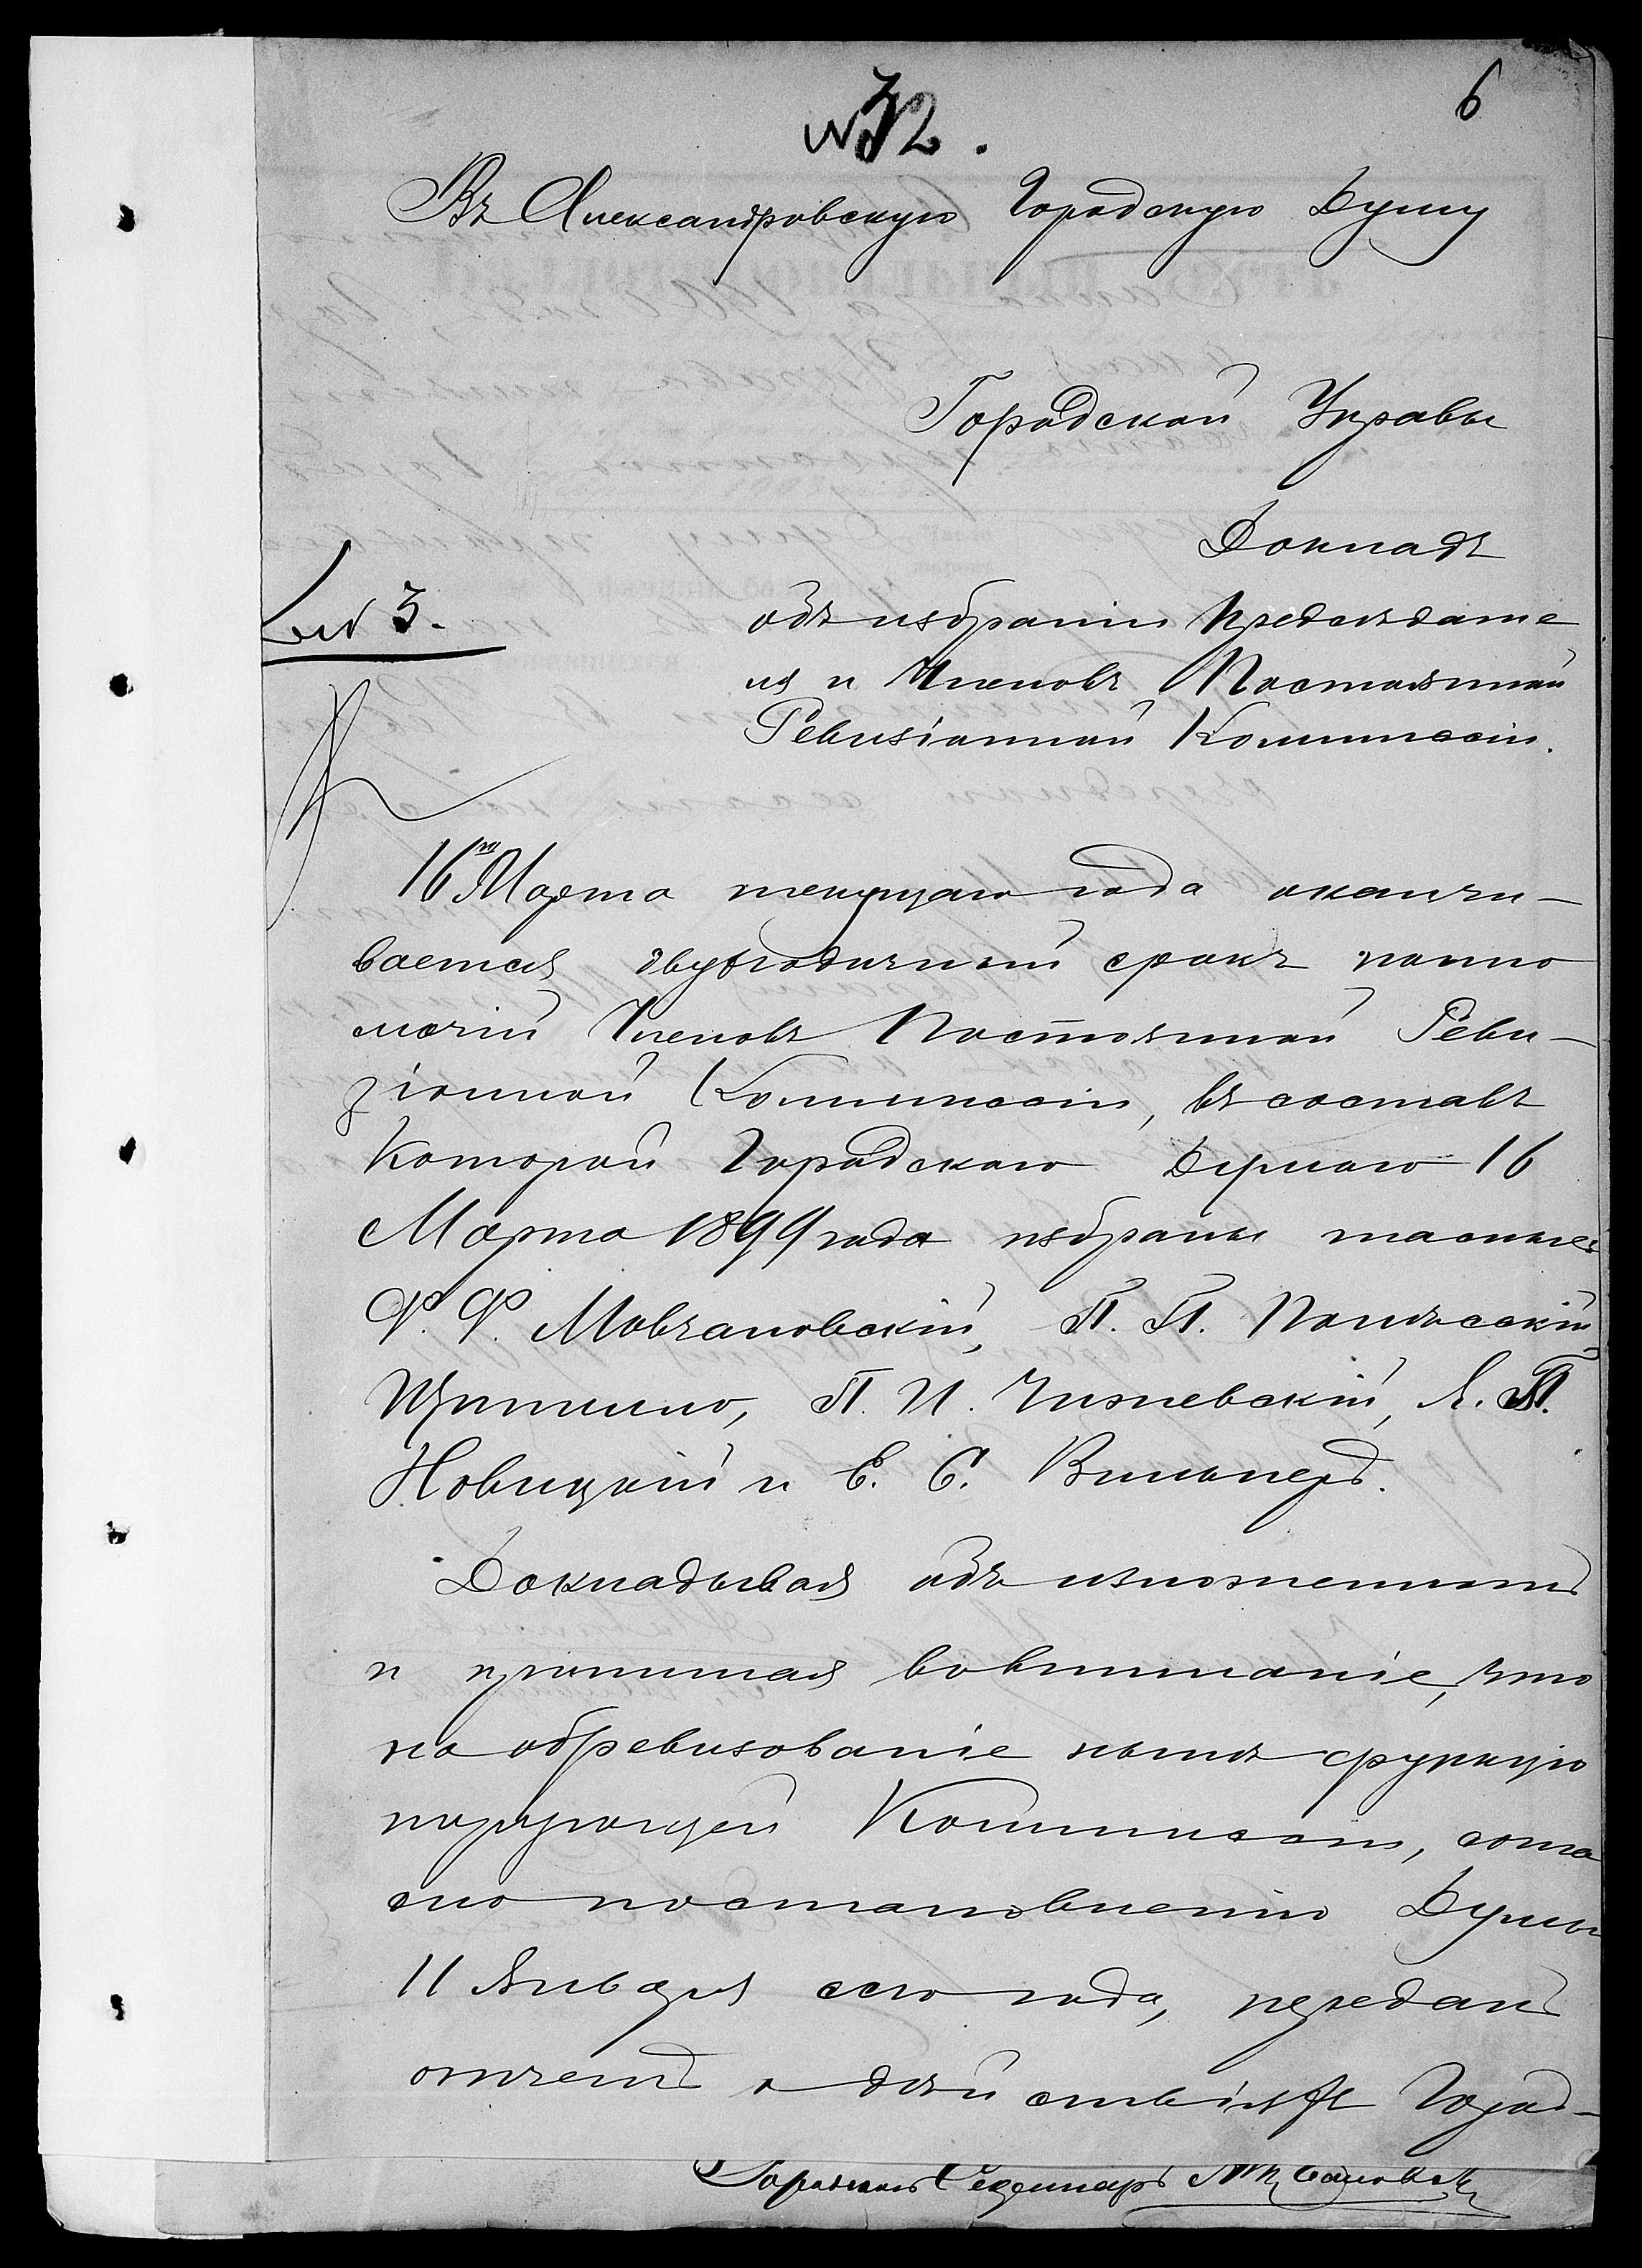 6
№ 32.
Въ Александровскую Городскую Думу
Городской Управы
Докладъ
№ 3.
объ избраніи Предсѣдате
ля и Членовъ Постоянной
Ревизіонной Коммиссіи.
16го Марта текущаго года оканчи-
вается двухгодичный срокъ полно
мочій Членовъ Постоянной Реви-
зіонной Коммиссіи, въ составъ
которой Городскою Думою 16
Марта 1899 года избраны гласные
Ф. Ф. Мовчановскій, П. П. Полѣсскій
Щитило, П. И. Чижевскій, Я. П.
Новицкій и Е. С. Вильнеръ.
Докладывая объ изложенномъ
и принимая во вниманіе, что
на обревизованіе нынѣ функціо
нирующей Коммиссіи, согла
сно постановленію Думы
11 Января сего года, переданъ
отчетъ о дѣйствіяхъ Город-
Городской Секретарь